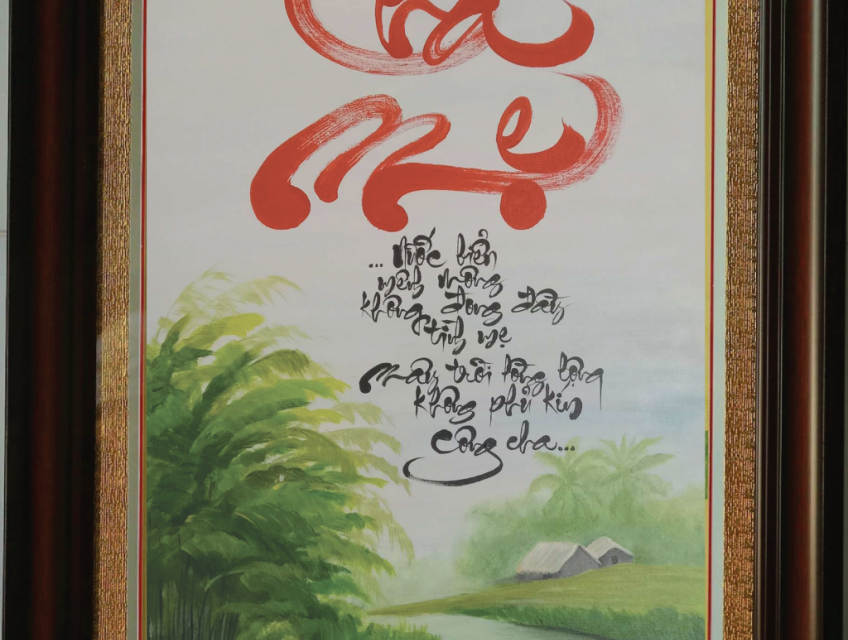 Cha
Mẹ
...Nước biển
mênh mông
không đong đầy
tình mẹ
Mây trời lồng lộng
không phủ kín
công cha...